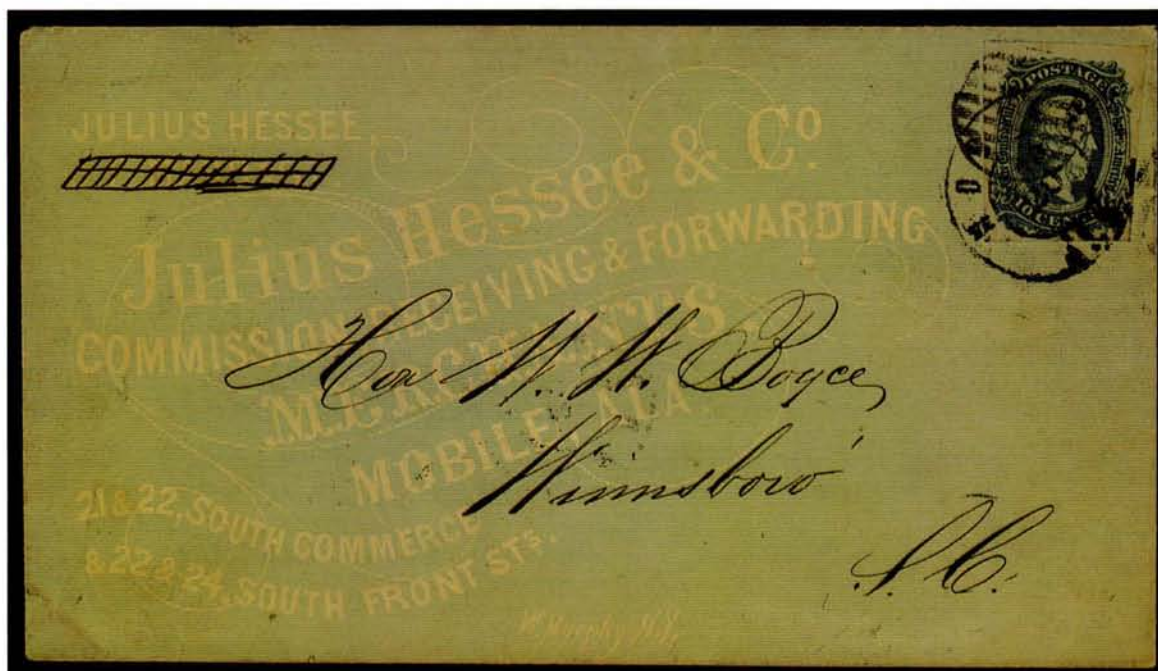 JULIUS HESSEE
Julius Hessee & Co.
COMMISSION RECEIVING & FORWARDING
MERCHANTS,
MOBILE, ALA.
21 & 22, SOUTH COMMERCE
& 22 & 24, SOUTH FRONT STS.
POSTAGE
10 CENTS
Hon W. W. Boyce,
Winnsboro'
S. C.